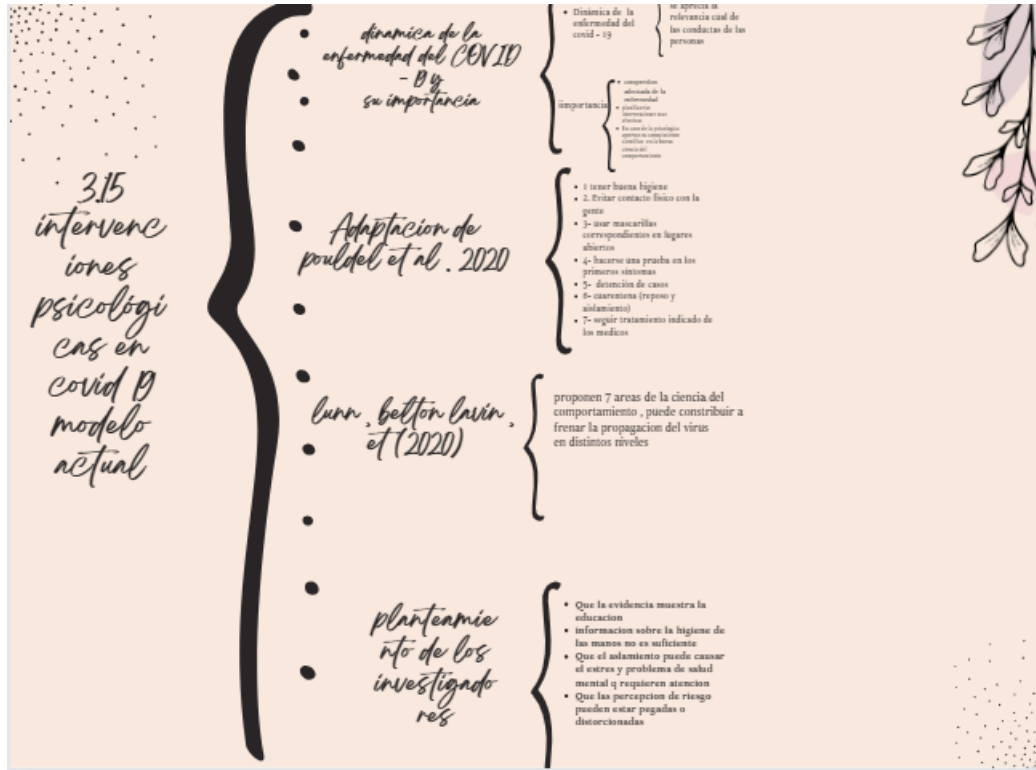 3.15
intervenc
iones
psicológi
cas en
covid 19
modelo
actual
dinamica de la
enfermedad del COVID
- 19 y
su importancia
• Dinámica de la
enfermedad del
covid - 19
se aprecia la
relevancia cual de
las conductas de las
personas
importancia
• comprension
adecuada de la
enfermedad
• planificar
intervenciones mas
efectivas
• En caso de la psicologia
aportar su conocimiento
científico en la
ciencia del
comportamiento
Adaptacion de
pouldel et al . 2020
• 1 tener buena higiene
• 2. Evitar contacto físico con la
gente
• 3- usar mascarillas
correspondientes en lugares
abiertos
• 4- hacerse una prueba en los
primeros síntomas
• 5- detención de casos
• 6- cuarentena (reposo y
aislamiento)
• 7- seguir tratamiento indicado de
los medicos
lunn , belton lavin ,
et (2020)
proponen 7 areas de la ciencia del
comportamiento , puede constribuir a
frenar la propagacion del virus
en distintos niveles
planteamie
nto de los
investigado
res
• Que la evidencia muestra la
educacion
• informacion sobre la higiene de
las manos no es suficiente
• Que el aslamiento puede causar
el estres y problema de salud
mental q requieren atencion
• Que las percepcion de riesgo
pueden estar pegadas o
distorcionadas